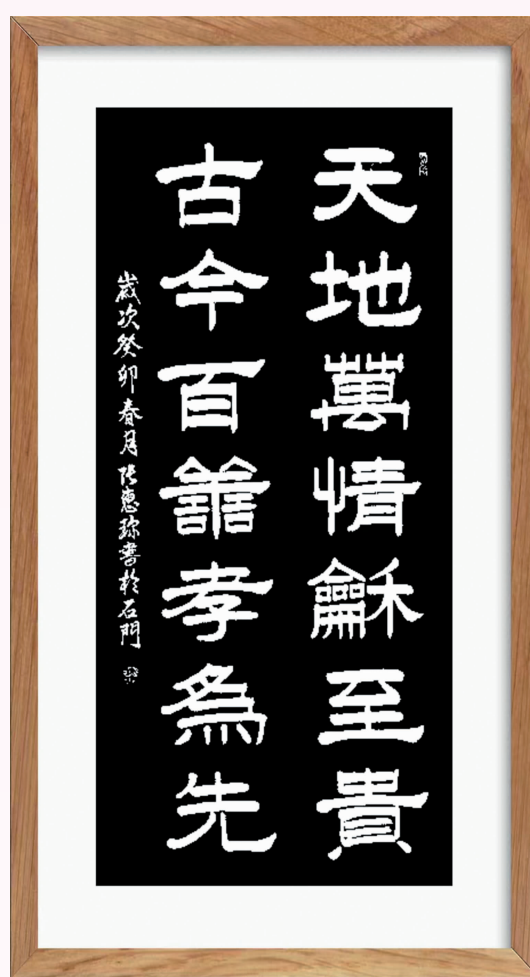 天地萬情龢至貴
古今百譱孝為先
歲次癸卯春月張惠珍書於石門